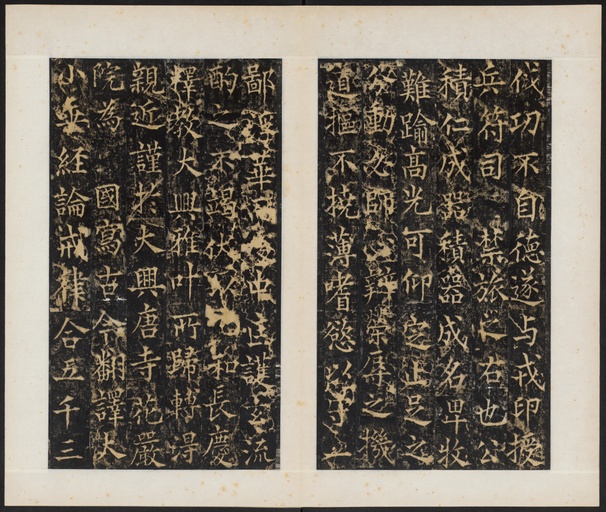 伐功不自德遂占戎印援
兵符司 禁旅之右也公
積仁成器積器成名卑牧
難踰高光可仰定止足之
分動必師心辯榮辱之機
道樞不撓薄嗜慾以
鄙浮華而護之流
酌之不竭伏以和長慶
釋教大興雅叶所歸轉得
親近謹於大興唐寺花嚴
院為 國寫古今翻譯大
小乘經論戒律合五千三